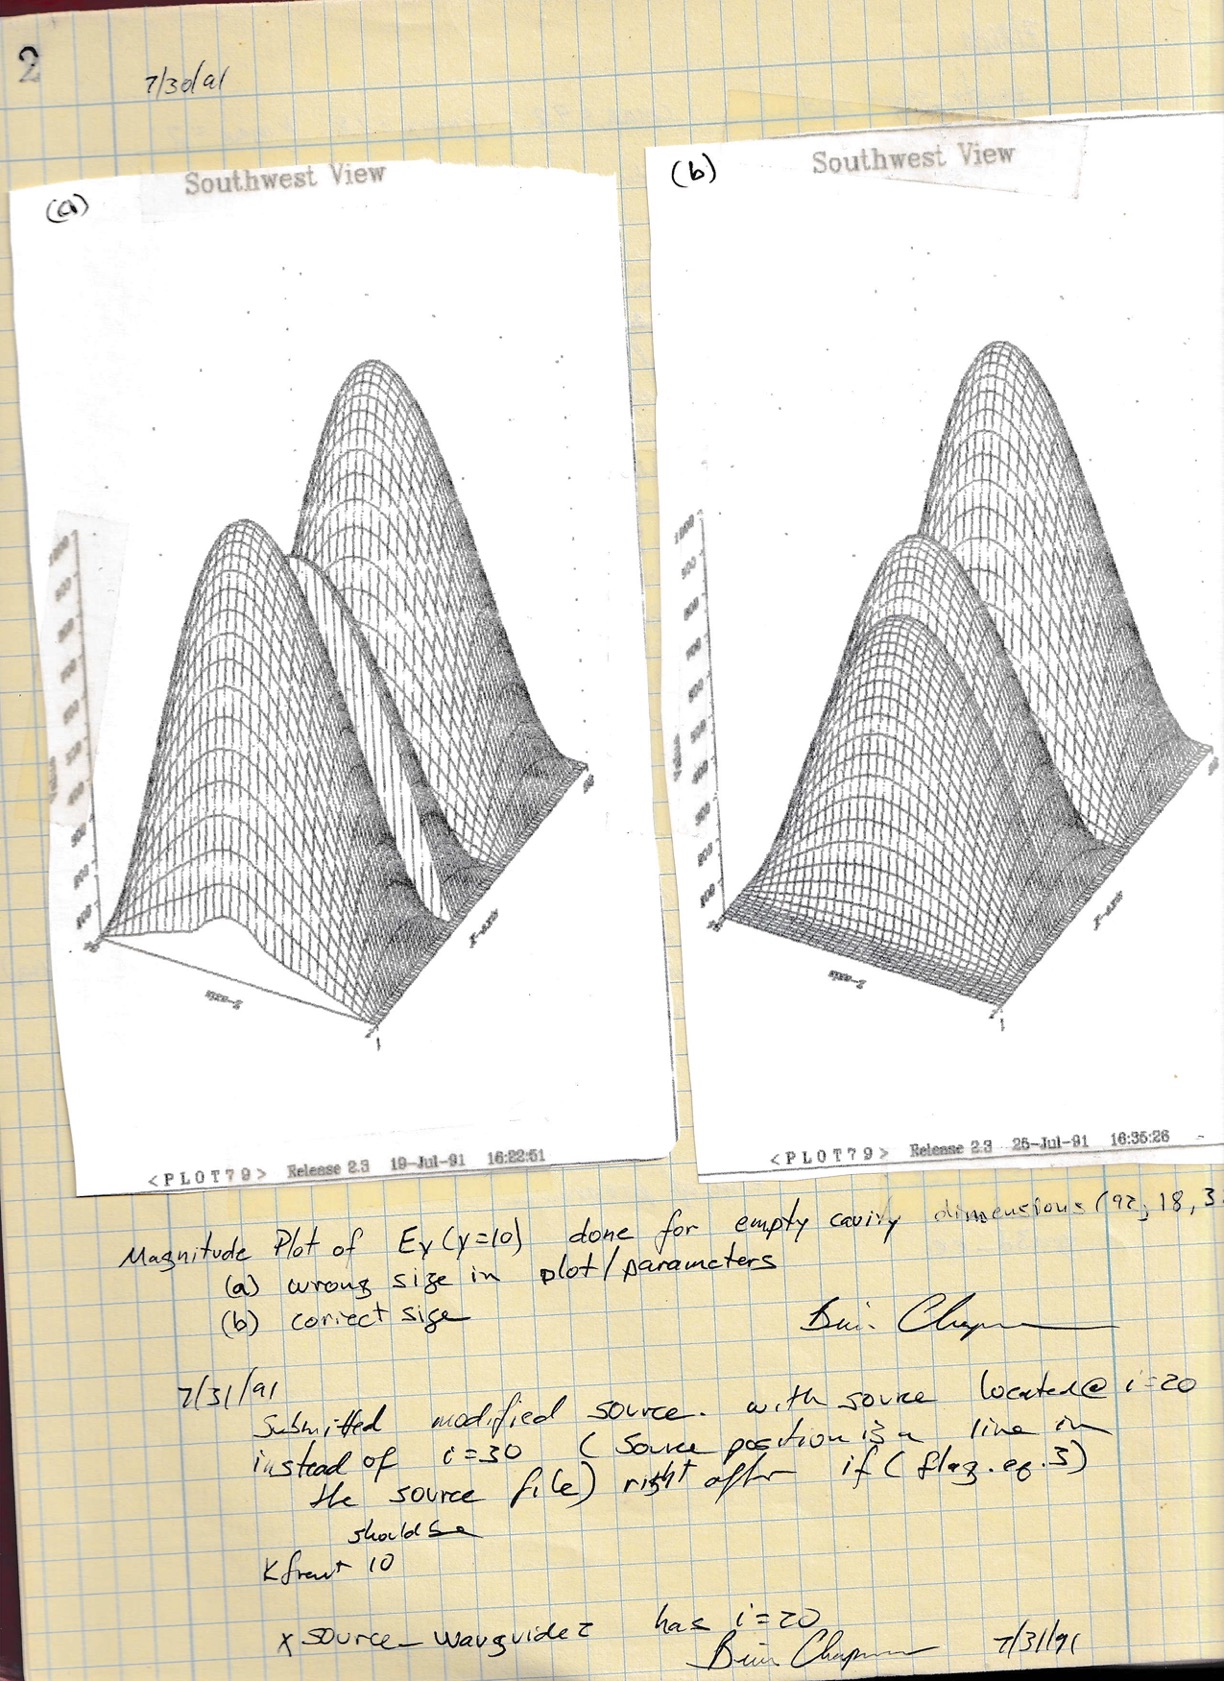 2
7/30/91
(a)
Southwest View
(b)
Southwest View
1000
900
800
100
1
1000
900
800
200
100
1
<PLOT79> Release 2.3 19-Jul-91 16:22:51
<PLOT79> Release 2.3 25-Jul-91 16:35:26
Magnitude Plot of Ey (y=10) done for empty cavity dimensions (92, 18, 3
(a) wrong size in plot/parameters
(b) correct size
Brian Chapman
7/31/91
Submitted modified source. with source located @ i=20
instead of i=30 (source position is a line in
the source file) right after if (flag.eq.3)
should be
Kfront 10
x source_waveguide2 has i=20
Brian Chapman 7/31/91